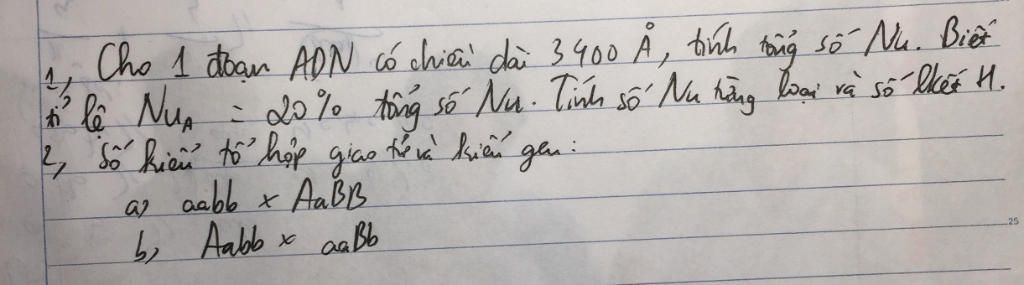 1, Cho 1 đoạn ADN có chiều dài 3400 Å, tính tổng số Nu. Biết
tỉ lệ NuA = 20% tổng số Nu. Tính số Nu từng loại và số lkết H.
2, Số kiểu tổ hợp giao tử và kiểu gen:
a) aabb x AaBB
b, Aabb x aaBb
25